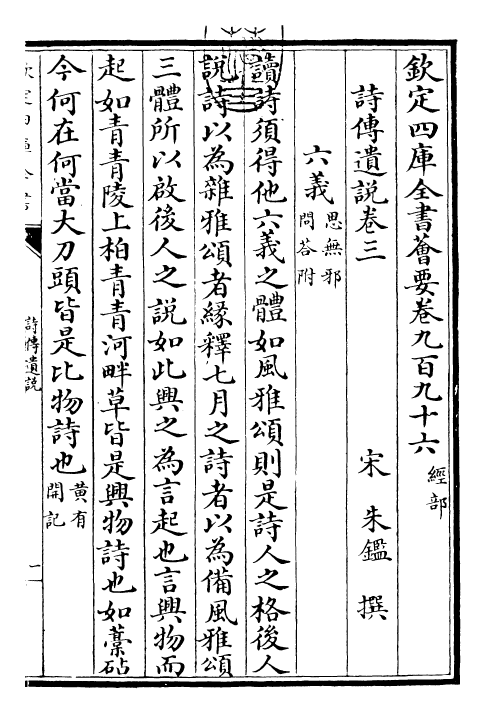 欽定四庫全書薈要卷九百九十六 經部
詩傳遺說卷三 宋 朱鑑 撰
六義 思無邪問答附
讀詩須得他六義之體如風雅頌則是詩人之格後人
說詩以為雜雅頌者緣釋七月之詩者以為備風雅頌
三體所以啟後人之說如此興之為言起也言興物而
起如青青陵上柏青青河畔草皆是興物詩也如藁砧
今何在何當大刀頭皆是比物詩也 黃有開記
詩傳遺說
一